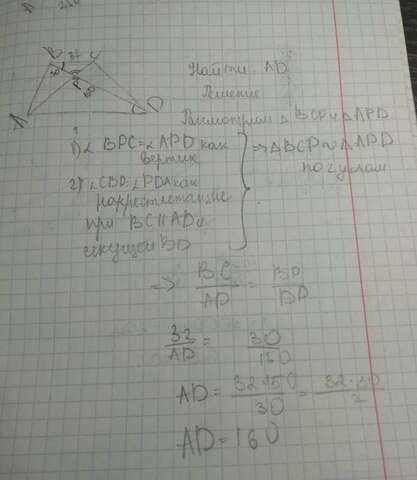 B 32 C
30 P
A D
Найти AD
Решение
Рассмотрим △BCP и △APD
1) ∠BPC=∠APD как
вертик
2) ∠CBD=∠PDA как
накрестлежащие
при BC||AD и
секущей BD
=> △BCP∾△APD
по углам
=> BC/AD = BP/PD
32/AD = 30/150
AD = 32·150/30 =
AD = 160